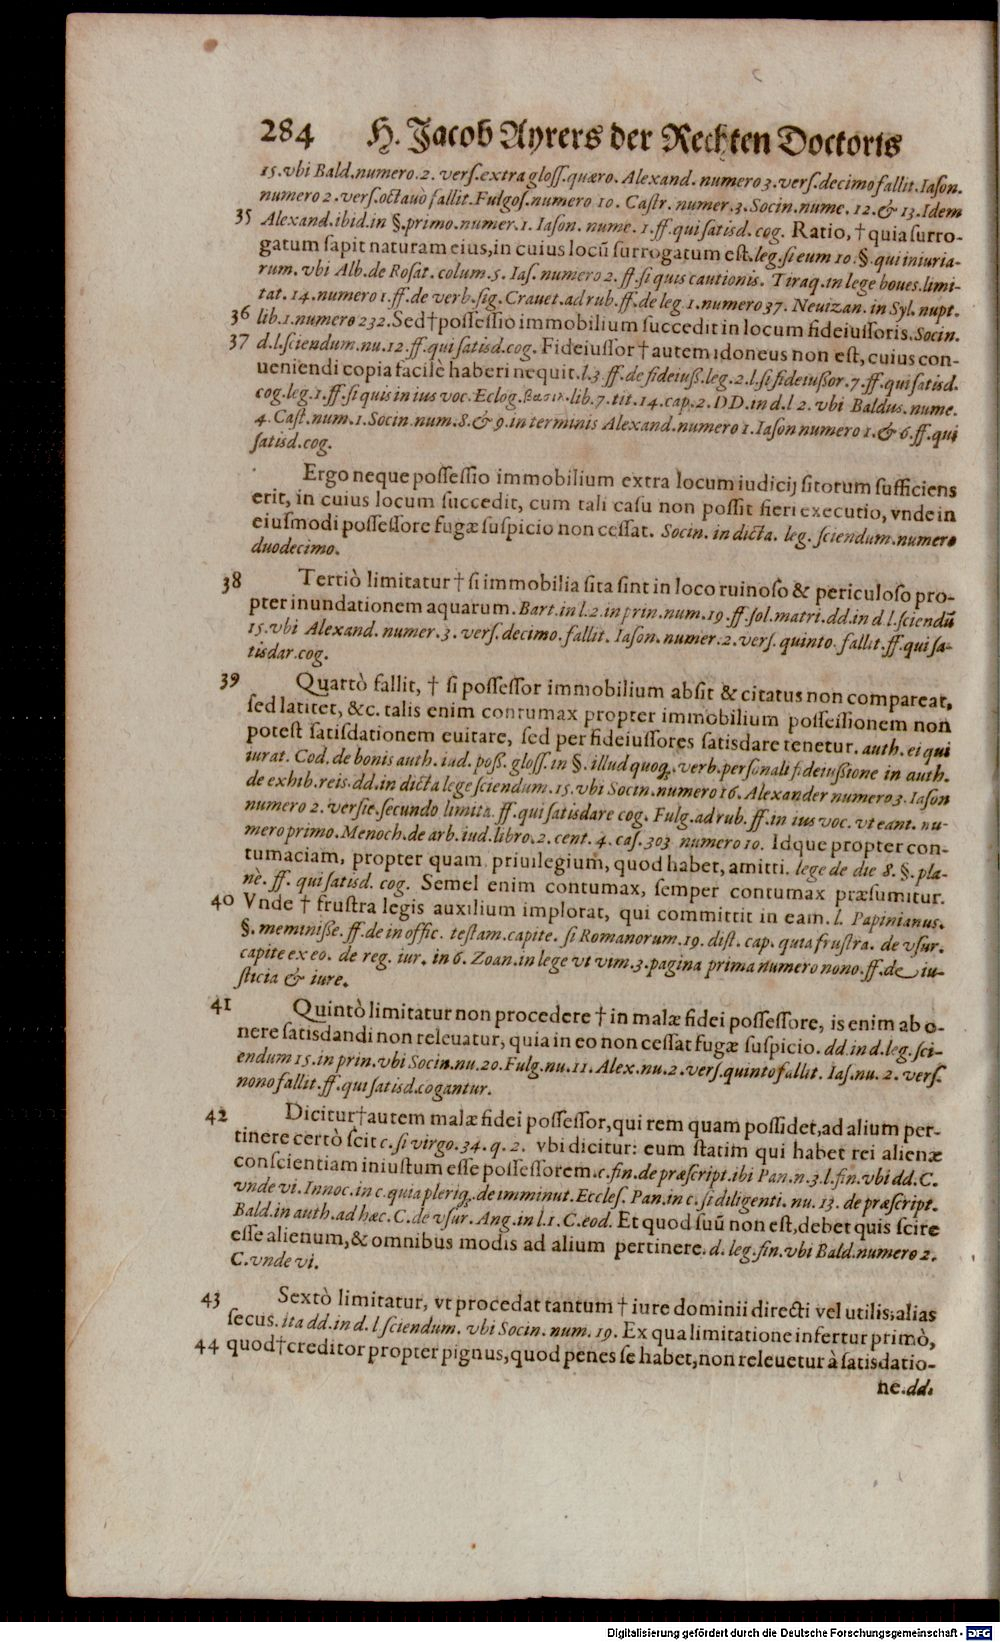 284 H. Jacob Ayrers der Rechten Doctoris
15. vbi Bald. numero. 2. verſ. extra gloſſ. quæro. Alexand. numero 3. verſ. decimo fallit. Iaſon.
numero 2. verſ. octauò fallit. Fulgoſ. numero 10. Caſtr. numer. 3. Socin. nume. 12. & 13. Idem
35 Alexand. ibid. in §. primo. numer. 1. Iaſon. nume. 1. ff. qui ſatisd. cog. Ratio, † quia ſurro-
gatum ſapit naturam eius, in cuius locũ ſurrogatum eſt. leg. ſi eum 10. §. qui iniuria-
rum. vbi Alb. de Roſat. colum. 5. Iaſ. numero 2. ff. ſi quis cautionis. Tiraq. in lege boues. limi-
tat. 14. numero 1. ff. de verb. ſig. Crauet. ad rub. ff. de leg. 1. numero 37. Neuizan. in Syl. nupt.
36 lib. 1. numero 232. Sed † poſſeſſio immobilium ſuccedit in locum fideiuſſoris. Socin.
37 d. l. ſciendum. nu. 12. ff. qui ſatisd. cog. Fideiuſſor † autem idoneus non eſt, cuius con-
ueniendi copia facilè haberi nequit. l. 3. ff. de fideiuſſ. leg. 2. l. ſi fideiuſſor. 7. ff. qui ſatisd.
cog. leg. 1. ff. ſi quis in ius voc. Eclog. βασιλ. lib. 7. tit. 14. cap. 2. DD. in d. l 2. vbi Baldus. nume.
4. Caſt. num. 1. Socin. num. 8. & 9. in terminis Alexand. numero 1. Iaſon numero 1. & 6. ff. qui
ſatisd. cog.
Ergo neque poſſeſſio immobilium extra locum iudicij ſitorum ſufficiens
erit, in cuius locum ſuccedit, cum tali caſu non poſſit fieri executio, vnde in
eiuſmodi poſſeſſore fugæ ſuſpicio non ceſſat. Socin. in dicta. leg. ſciendum. numero
duodecimo.
38 Tertiò limitatur † ſi immobilia ſita ſint in loco ruinoſo & periculoſo pro-
pter inundationem aquarum. Bart. in l. 2. in prin. num. 19. ff. ſol. matri. dd. in d. l. ſciendũ
15. vbi Alexand. numer. 3. verſ. decimo. fallit. Iaſon. numer. 2. verſ. quinto. fallit. ff. qui ſa-
tisdar. cog.
39 Quartò fallit, † ſi poſſeſſor immobilium abſit & citatus non compareat,
ſed latitet, &c. talis enim contumax propter immobilium poſſeſſionem non
poteſt ſatiſdationem euitare, ſed per fideiuſſores ſatisdare tenetur. auth. ei qui
iurat. Cod. de bonis auth. iud. poſſ. gloſſ. in §. illud quoq;. verb. perſonali fideiuſſione in auth.
de exhib. reis. dd. in dicta lege ſciendum. 15. vbi Socin. numero 16. Alexander numero 3. Iaſon
numero 2. verſie. ſecundo limita. ff. qui ſatisdare cog. Fulg. ad rub. ff. in ius voc. vt eant. nu-
mero primo. Menoch. de arb. iud. libro. 2. cent. 4. caſ. 303 numero 10. Idque propter con-
tumaciam, propter quam priuilegium, quod habet, amitti. lege de die 8. §. pla-
nè. ff. qui ſatisd. cog. Semel enim contumax, ſemper contumax præſumitur.
40 Vnde † fruſtra legis auxilium implorat, qui committit in eam. l. Papinianus.
§. meminiſſe. ff. de inoffic. teſtam. capite. ſi Romanorum. 19. diſt. cap. quia fruſtra. de vſur.
capite ex eo. de reg. iur. in 6. Zoan. in lege vt vim. 3. pagina prima numero nono. ff. de iu-
ſticia & iure.
41 Quintò limitatur non procedere † in malæ fidei poſſeſſore, is enim ab o-
nere ſatisdandi non releuatur, quia in eo non ceſſat fugæ ſuſpicio. dd. in d. leg. ſci-
endum 15. in prin. vbi Socin. nu. 20. Fulg. nu. 11. Alex. nu. 2. verſ. quinto fallit. Iaſ. nu. 2. verſ.
nono fallit. ff. qui ſatisd. cogantur.
42 Dicitur † autem malæ fidei poſſeſſor, qui rem quam poſſidet, ad alium per-
tinere certò ſcit c. ſi virgo. 34. q. 2. vbi dicitur: eum ſtatim qui habet rei alienæ
conſcientiam iniuſtum eſſe poſſeſſorem. c. fin. de præſcript. ibi Pan. n. 3. l. fin. vbi dd. C.
vnde vi. Innoc. in c. quia pleriq;. de imminut. Eccleſ. Pan. in c. ſi diligenti. nu. 13. de præſcript.
Bald. in auth. ad hæc. C. de vſur. Ang. in l. 1. C. eod. Et quod ſuũ non eſt, debet quis ſcire
eſſe alienum, & omnibus modis ad alium pertinere. d. leg. fin. vbi Bald. numero 2.
C. vnde vi.
43 Sextò limitatur, vt procedat tantum † iure dominii directi vel utilis; alias
ſecus. ita dd. in d. l ſciendum. vbi Socin. num. 19. Ex qua limitatione infertur primò,
44 quod † creditor propter pignus, quod penes ſe habet, non releuetur à ſatisdatio-
ne. dd.
Digitalisierung gefördert durch die Deutsche Forschungsgemeinschaft - DFG